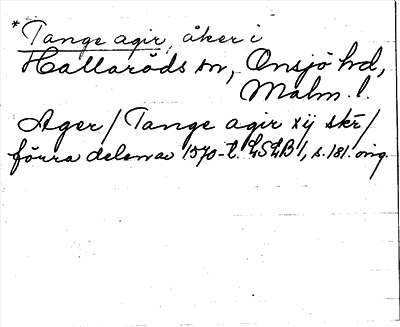 *Tange agir, åker i
Hallaröds sn, Onsjö hd,
Malm. l.
Ager / Tange agir xij skr /
förra delen av 1570-t. LSLB 1, s. 181. orig.